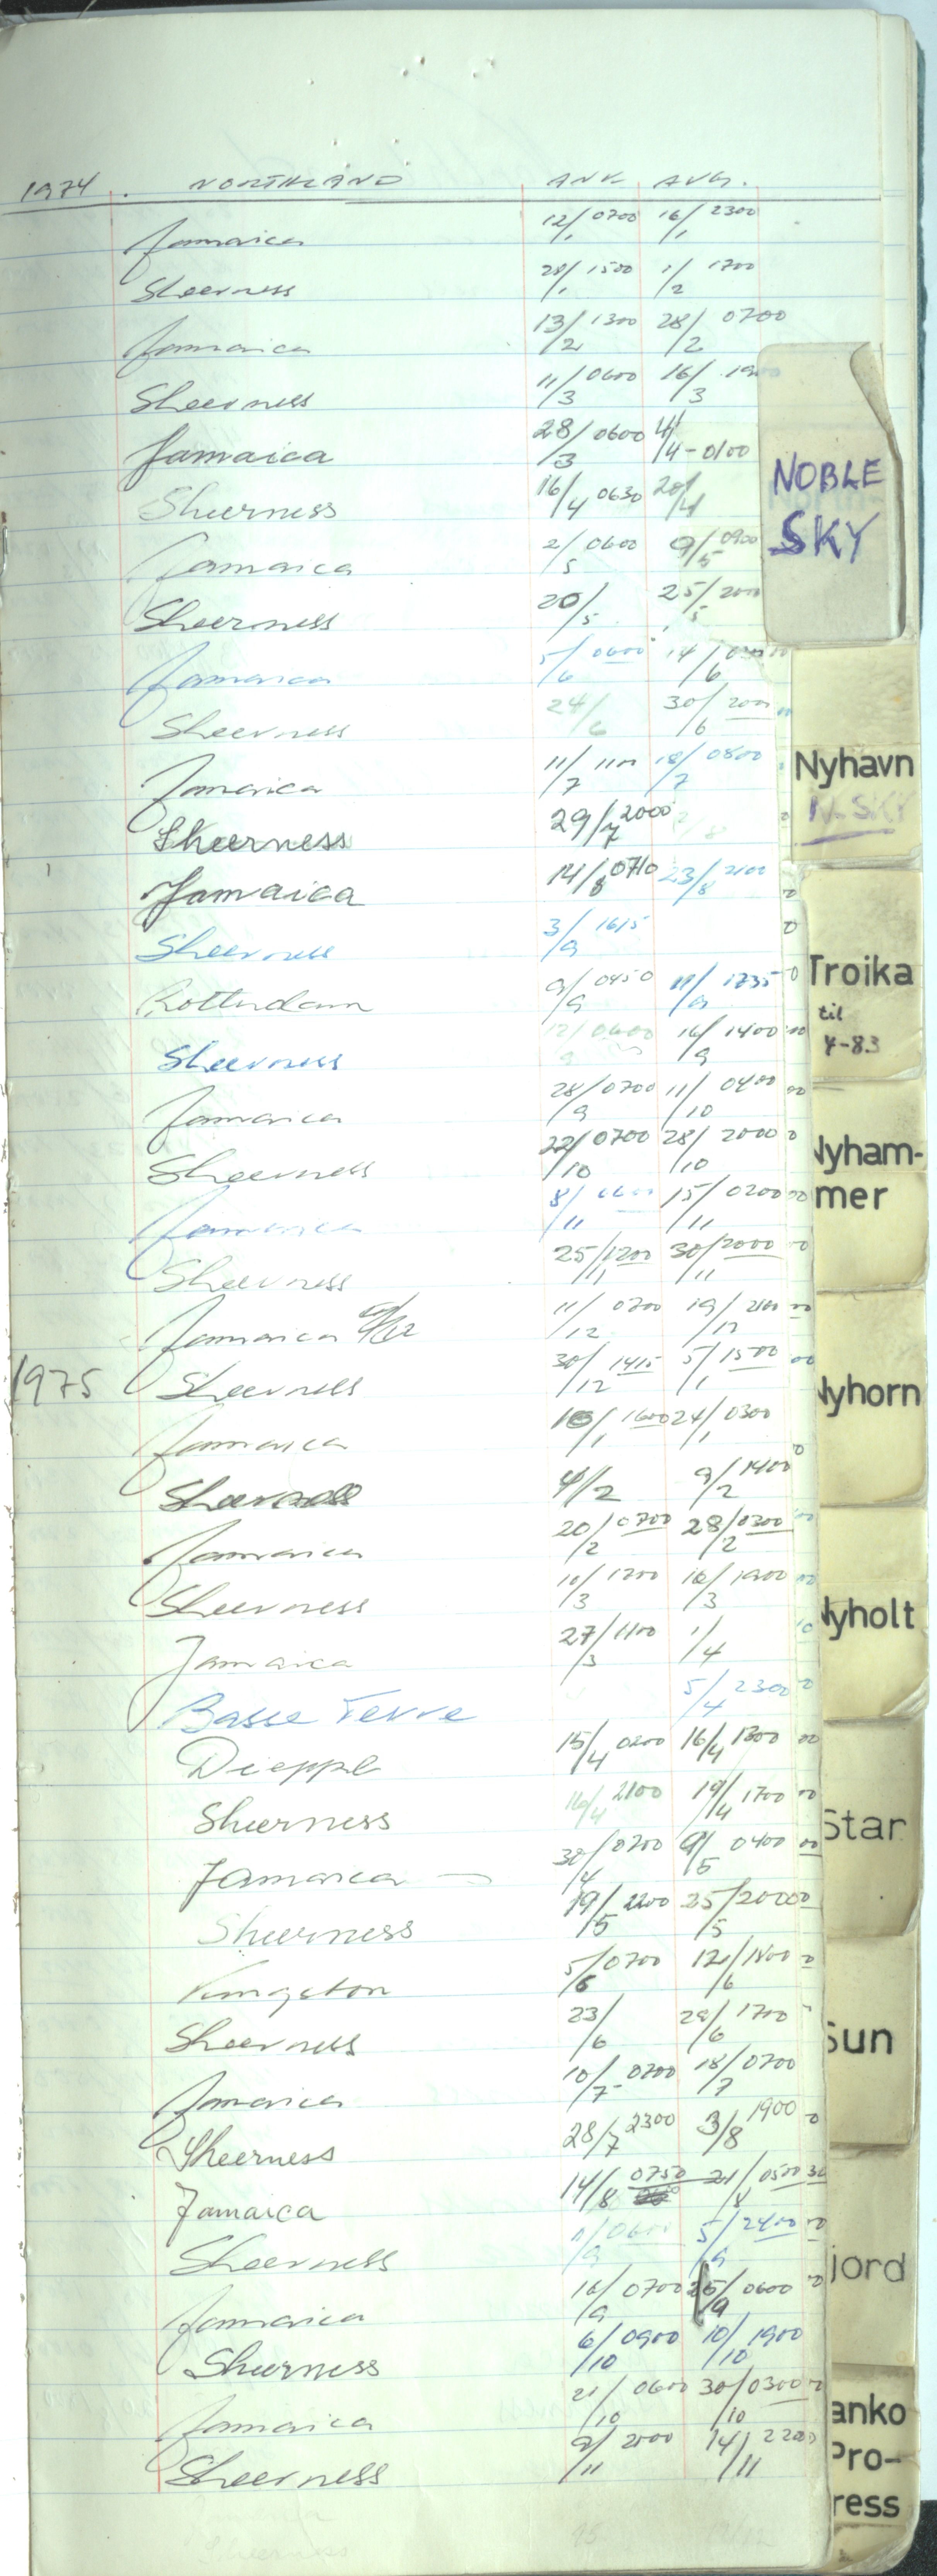 1974. NORTHLAND ANK. AVG.
Jamaica 12/1 0700 16/1 2300
Sheerness 28/1 1500 1/2 1700
Jamaica 13/2 1300 28/2 0700
Sheerness 11/3 0600 16/3
Jamaica 28/3 0600 4/4-0100
Sheerness 16/4 0630 20/4
Jamaica 2/5 0600 9/5 0900
Sheerness 20/5 25/5 2000
Jamaica 5/6 0600 14/6
Sheerness 24/6 30/6 2000
Jamaica 11/7 1100 18/7 0800
Sheerness 29/7 2000
Jamaica 14/8 0710 23/8 2100
Sheerness 3/9 1615
Rotterdam 9/9 0450 11/9 1735
Sheerness 12/9 0600 16/9 1400
Jamaica 28/9 0700 11/10 0400
Sheerness 22/10 0700 28/10 2000
Jamaica 8/11 15/11 0200
Sheerness 25/11 1200 30/11 2000
Jamaica 11/12 0700 19/12
1975 Sheerness 30/12 1415 5/1 1500
Jamaica 16/1 1600 24/1 0300
Sheerness 4/2 9/2 1400
Jamaica 20/2 0700 28/2 0300
Sheerness 10/3 1200 16/3 1900
Jamaica 27/3 1100 1/4
Basse Terre 5/4 2300
Dieppe 15/4 0200 16/4 1300
Sheerness 16/4 2100 19/4 1700
Jamaica 30/4 0700 9/5 0400
Sheerness 19/5 2200 25/5 2000
Kingston 5/6 0700 12/6 1800
Sheerness 23/6 28/6 1700
Jamaica 10/7 0700 18/7 0700
Sheerness 28/7 2300 3/8 1900
Jamaica 14/8 0750 21/8 0500
Sheerness 5/9 2400
Jamaica 16/9 0700 25/9 0600
Sheerness 6/10 0900 10/10 1900
Jamaica 21/10 0600 30/10 0300
Sheerness 9/11 2000 14/11 2200
NOBLE
SKY
Nyhavn
N. SKY
Troika
til
4-83
Nyham-
mer
Nyhorn
Nyholt
Star
Sun
jord
anko
Pro-
ress